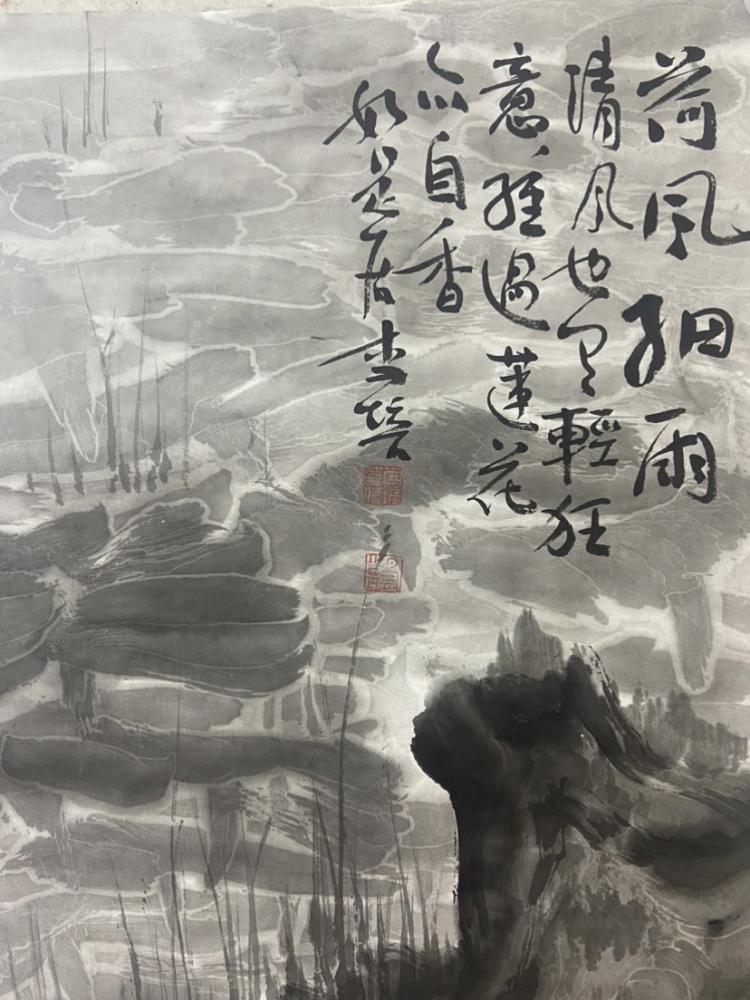 荷風細雨
清風也有輕狂
意經過蓮花
亦自香
如是居李